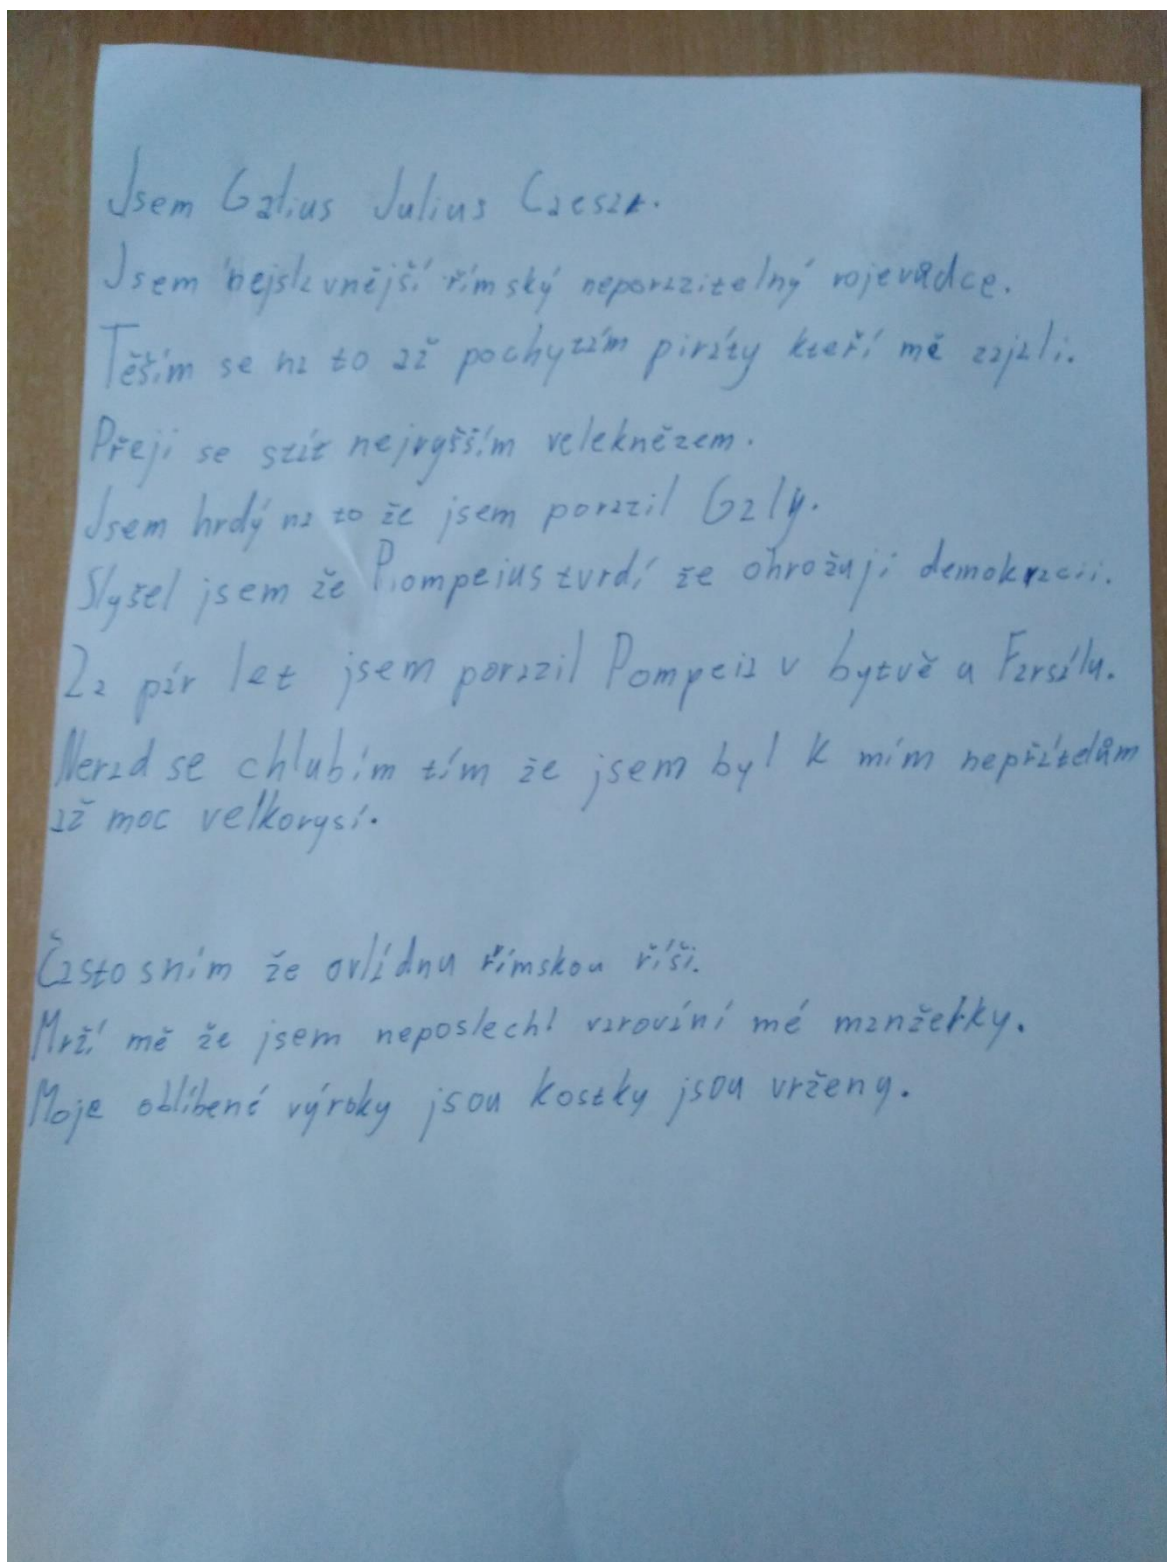 Jsem Gaius Julius Caesar.
Jsem nejslavnější římský neporazitelný vojevůdce.
Těším se na to až pochytám piráty kteří mě zajali.
Přeji se stát nejvyšším veleknězem.
Jsem hrdý na to že jsem porazil Galy.
Slyšel jsem že Pompeius tvrdí že ohrožuji demokracii.
Za pár let jsem porazil Pompeia v bytvě u Farsálu.
Nerad se chlubím tím že jsem byl k mím nepřátelům
až moc velkorysí.
Často sním že ovládnu římskou říši.
Mrží mě že jsem neposlechl varování mé manželky.
Moje oblíbené výroky jsou kostky jsou vrženy.